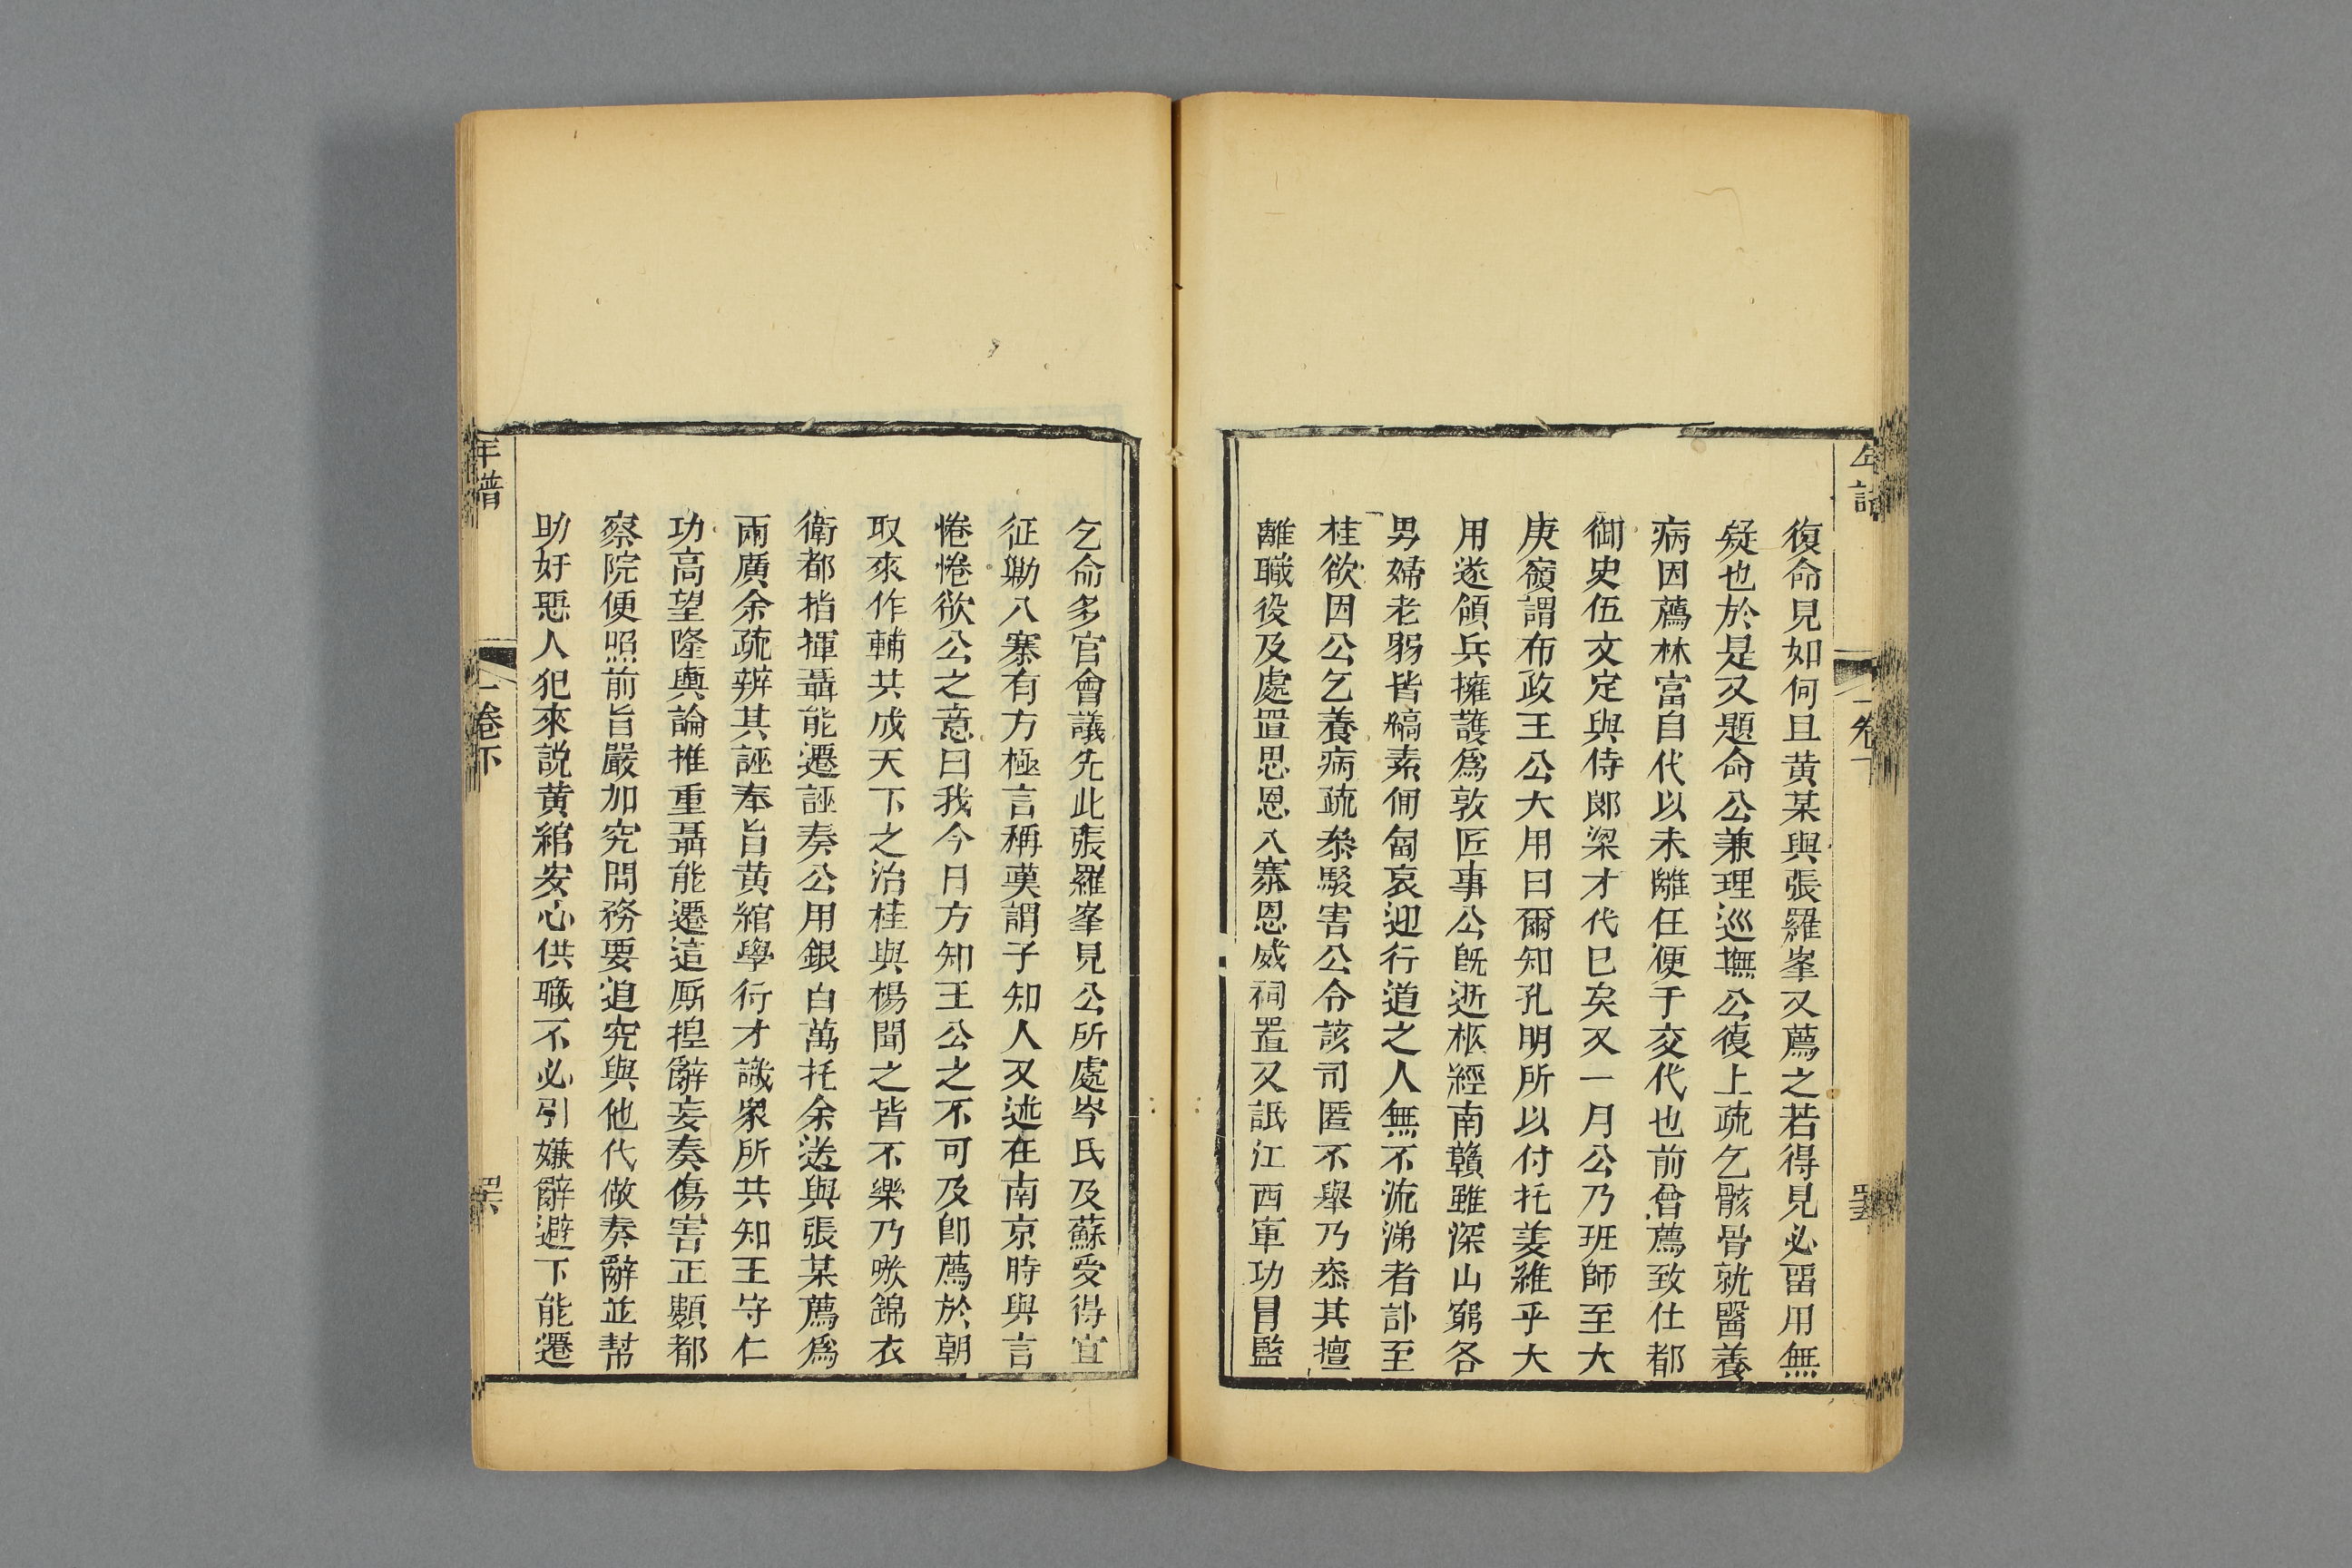 復命見如何且黄某與張羅峯又薦之若得見必畱用無
疑也於是又題命公兼理巡撫公復上疏乞骸骨就醫養
病因薦林富自代以未離任便于交代也前曾薦致仕都
御史伍文定與侍郎梁才代巳矣又一月公乃班師至大
庾嶺謂布政王公大用曰爾知孔明所以付托姜維乎大
用遂領兵擁護爲敦匠事公既逝柩經南贛雖深山窮各
男婦老弱皆縞素匍匐哀迎行道之人無不流涕者訃至
桂欲因公乞養病疏叅駁害公令該司匿不舉乃叅其擅
離職役及處置思恩八寨恩威祠置又詆江西軍功冐監
乞命多官會議先此張羅峯見公所處岑氏及蘇受得宜
征勦八寨有方極言稱嘆謂予知人又述在南京時與言
惓惓欲公之意曰我今日方知王公之不可及卽薦於朝
取來作輔共成天下之治桂與楊聞之皆不樂乃嗾錦衣
衛都指揮聶能遷誣奏公用銀白萬托余送與張某薦爲
兩廣余疏辨其誣奉旨黄綰學行才識衆所共知王守仁
功高望隆輿論推重聶能遷這厮揑辭妄奏傷害正類都
察院便照前旨嚴加究問務要追究與他代做奏辭並幫
助奸惡人犯來説黄綰安心供職不必引嫌辭避下能遷
年譜
卷下